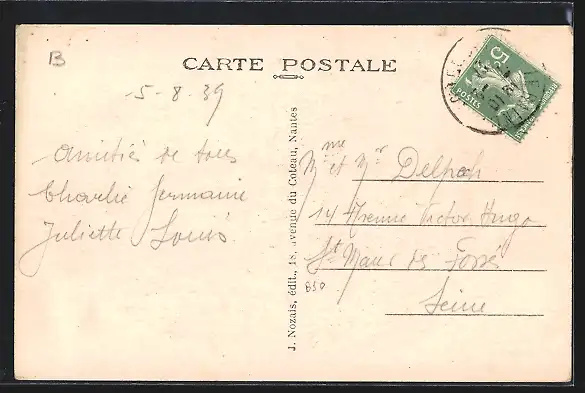 B
CARTE POSTALE
5-8-39
Amitiés de tous
Charlie Germaine
Juliette Louis
J. Nozais, édit., 18, avenue du Coteau, Nantes
Mme et Mr Delpech
14 Avenue Victor Hugo
St Maur des Fossés
Seine
850
5c
POSTES